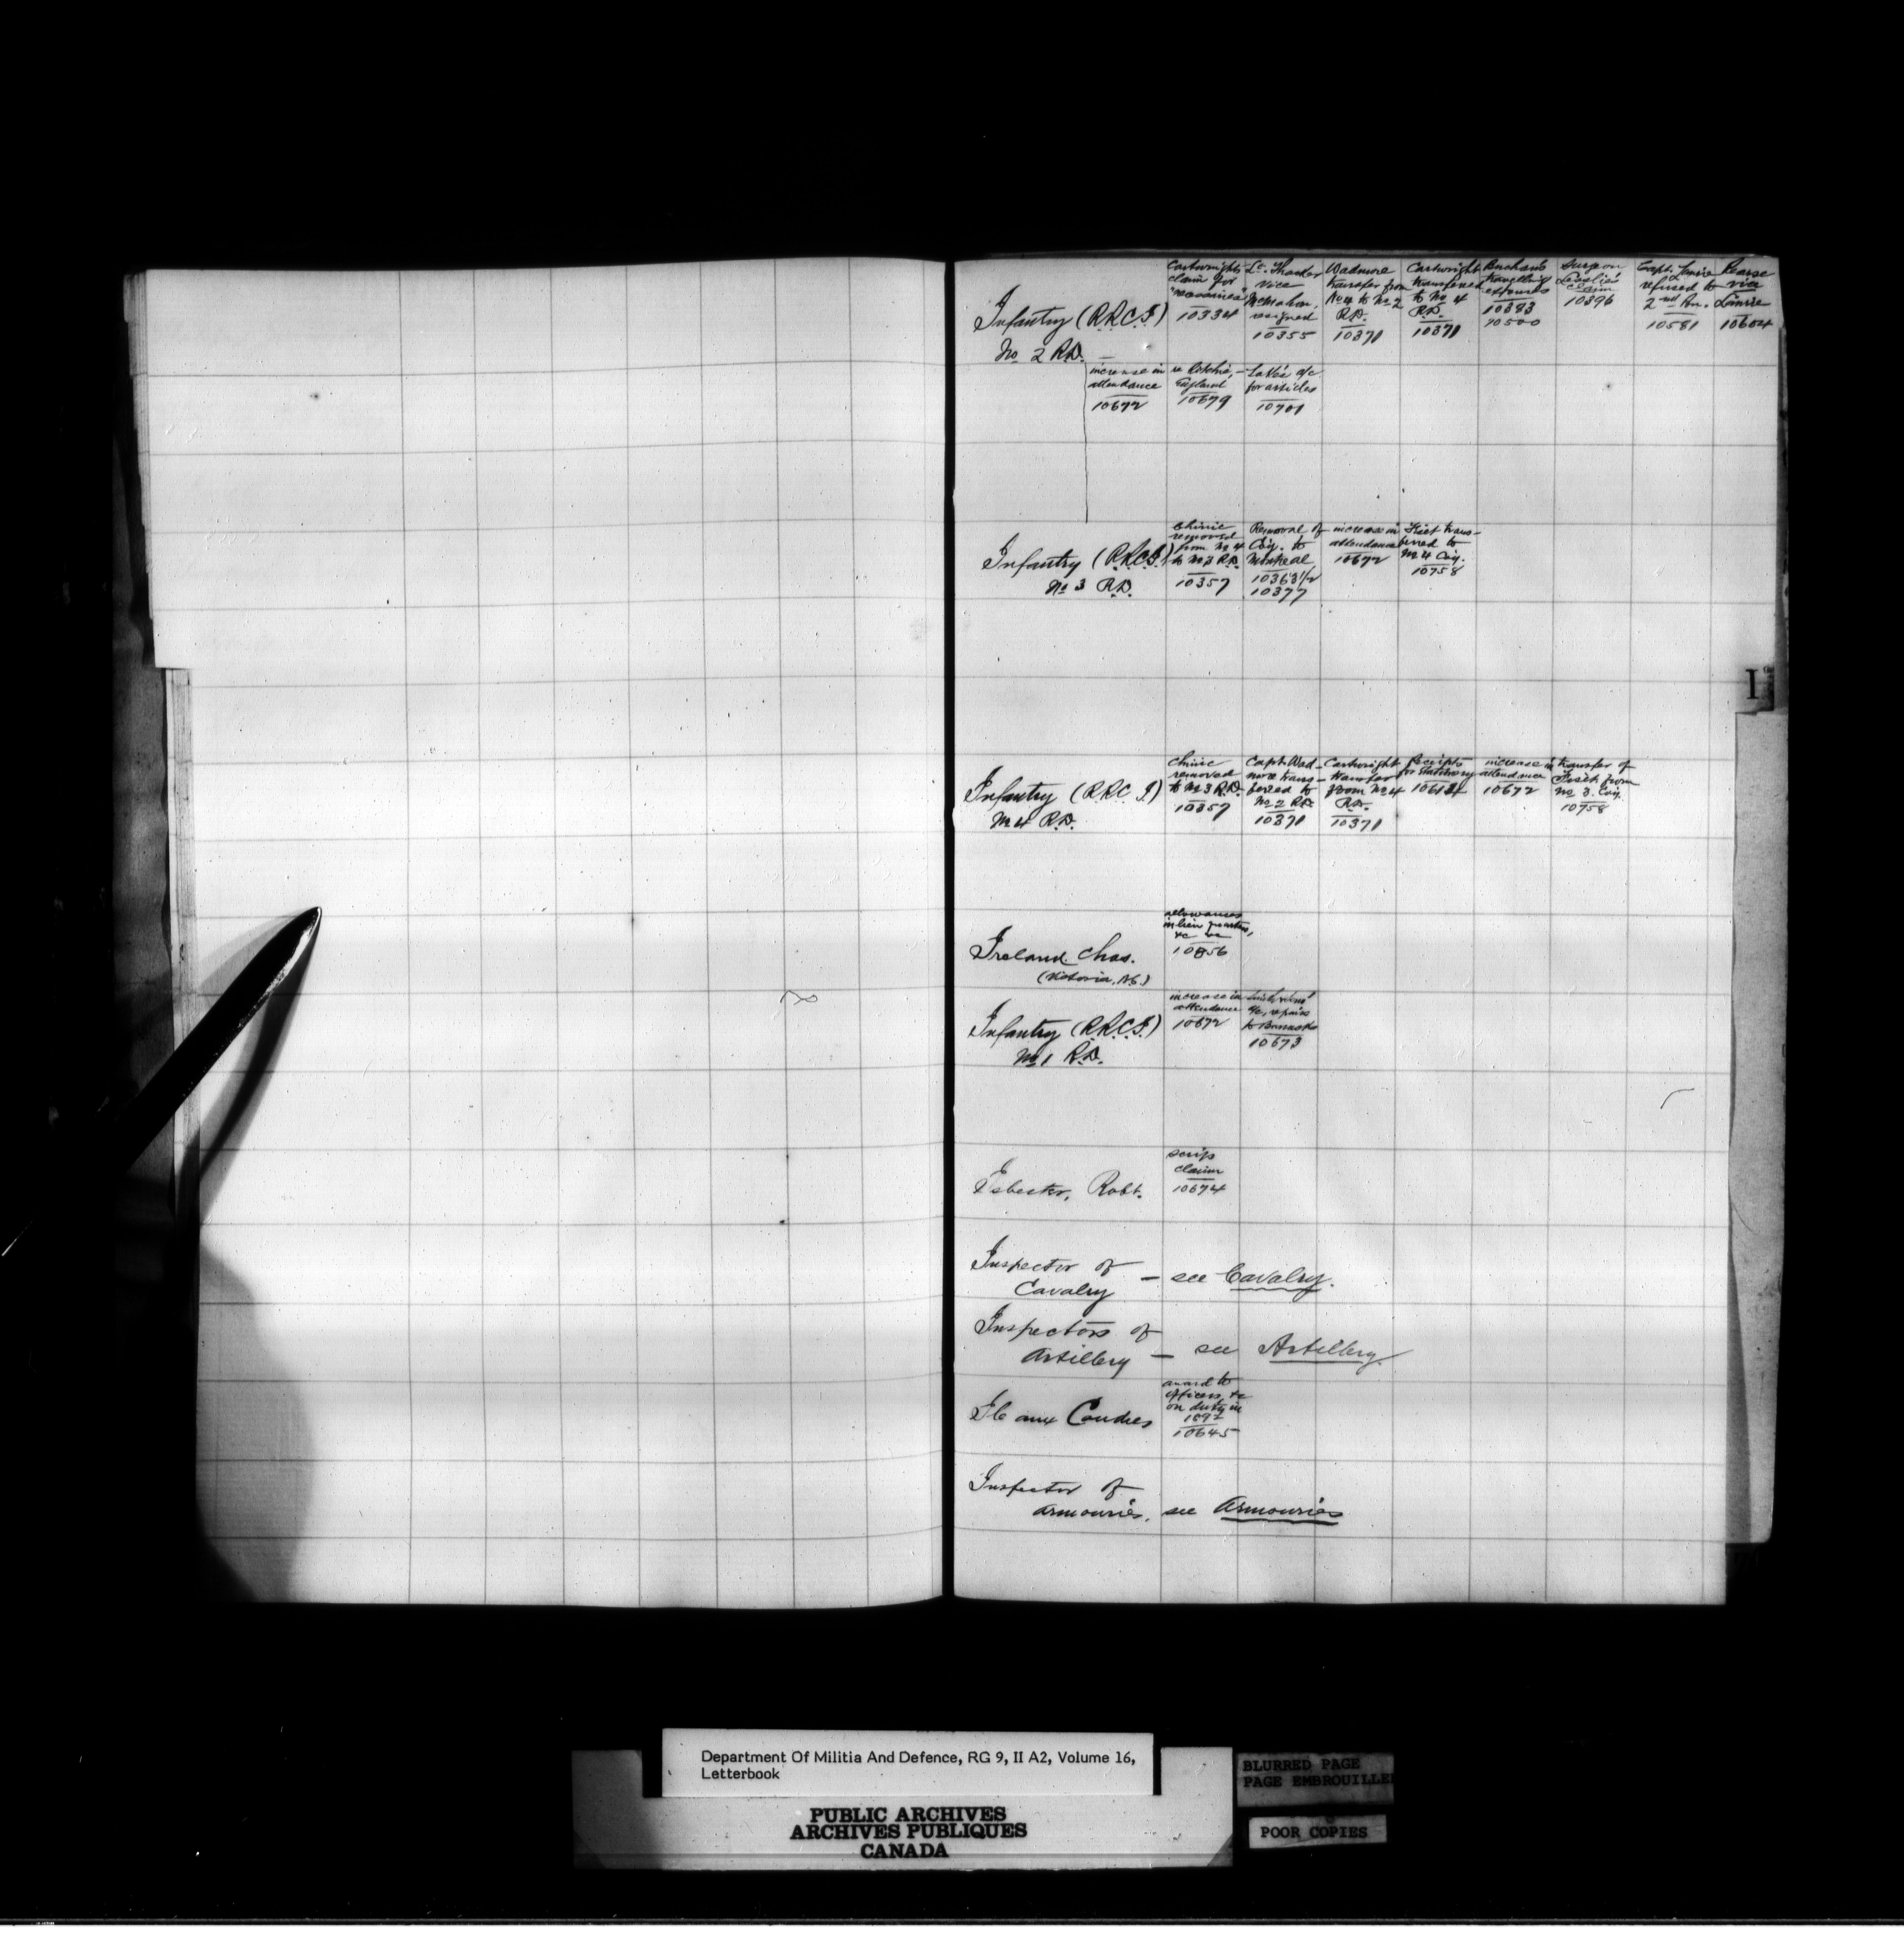 Infantry (R.R.C.I.)
No 2 R.D. —
Cartwright's
claim for
10334
Lt. Thacker
vice
McMahon,
resigned
10355
Wadmore
transfer from
No 4 to No 2
R.D.
10371
Cartwright
transferred
to No 4
R.D.
10371
Buchan's
travelling
expenses
10383
10500
Surgeon
claim
10396
Capt. Laurie
refused to
2nd Bn.
10581
Pearse
vice
Laurie
10604
increase in
attendance
10672
re Ritchie,
England
10679
Lake's a/c
for articles
10701
Infantry (R.R.C.I.)
No 3 R.D.
Chinic
removed
from No 4
to No 3 R.D.
10357
Removal of
Coy. to
Montreal
10363 1/2
10377
increase in
attendance
10672
Fiset trans-
ferred to
No 4 Coy.
10758
Infantry (R.R.C.I.)
No 4 R.D.
Chinic
removed
to No 3 R.D.
10357
Capt. Wad-
more trans-
ferred to
No 2 R.D.
10371
Cartwright
transfer
from No 4
R.D.
10371
Receipts
for Stationery
10612
increase in
attendance
10672
transfer of
Fiset from
No 3. Coy.
10758
Ireland. Chas.
(Victoria, B.C.)
allowances
in lieu quarters,
&c
10856
Infantry (R.R.C.I.)
No 1 R.D.
increase in
attendance
10672
a/c, repairs
to Barracks
10673
Isbester, Robt.
scrip
claim
10674
Inspector of
Cavalry — see Cavalry.
Inspectors of
Artillery — see Artillery.
Ile aux Coudres
award to
officers, &c
on duty in
1892
10645
Inspector of
Armouries. see Armouries
I
Department Of Militia And Defence, RG 9, II A2, Volume 16,
Letterbook
PUBLIC ARCHIVES
ARCHIVES PUBLIQUES
CANADA
BLURRED PAGE
PAGE EMBROUILLEE
POOR COPIES